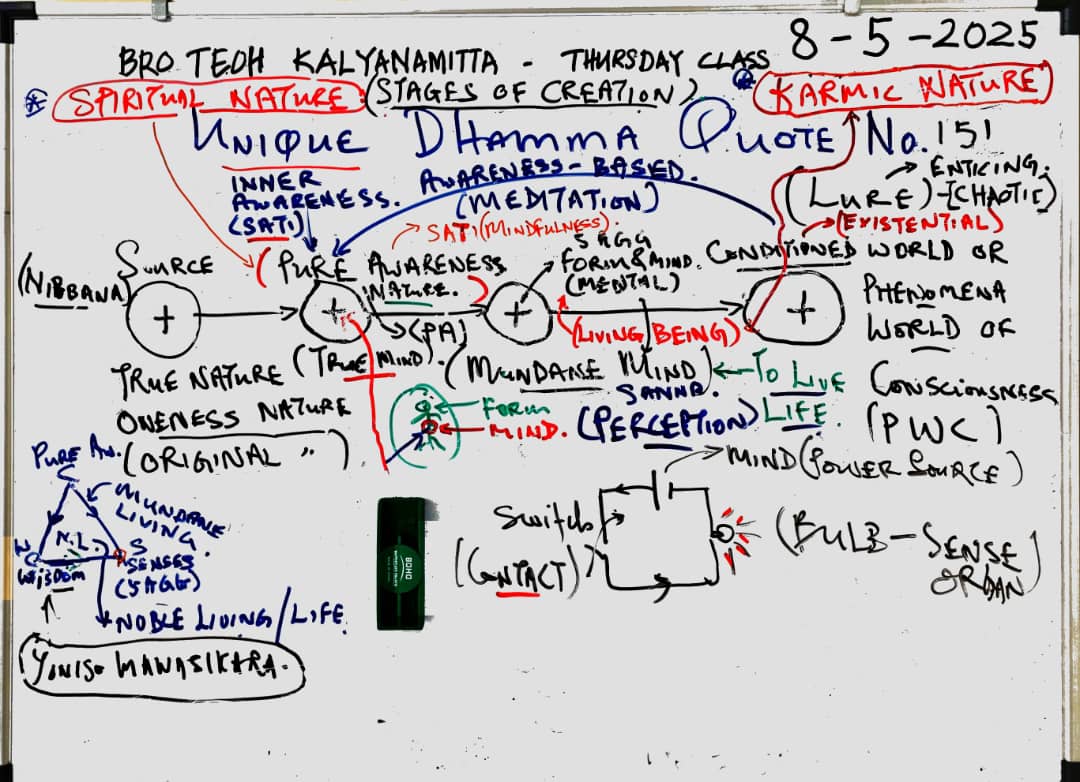 8-5-2025
BRO TEOH KALYANAMITTA - THURSDAY CLASS
SPIRITUAL NATURE: (STAGES OF CREATION)
(KARMIC NATURE)
UNIQUE DHAMMA QUOTE No. 151
INNER
AWARENESS.
(SATI)
AWARENESS-BASED.
(MEDITATION)
ENTICING.
(LURE)-(CHAOTIC)
(EXISTENTIAL)
SATI (MINDFULNESS).
SOURCE
(NIBBANA)
(PURE AWARENESS
NATURE.)
(PA)
(TRUE MIND).
5AGG
FORM & MIND.
(MENTAL)
(LIVING BEING)
CONDITIONED WORLD OR
PHENOMENA
WORLD OF
CONSCIOUSNESS
(PWC)
TRUE NATURE
ONENESS NATURE
(ORIGINAL ")
(MUNDANE MIND)
SANNA.
(PERCEPTION)
TO LIVE
LIFE.
FORM
MIND.
PURE AW.
MUNDANE
LIVING.
N.L.
W
WIJSDOM
S
SENSES
(5AGG)
NOBLE LIVING/LIFE.
YONISO MANASIKARA.
MIND (POWER SOURCE)
SWITCH
(CONTACT)
(BULB-SENSE
ORGAN)